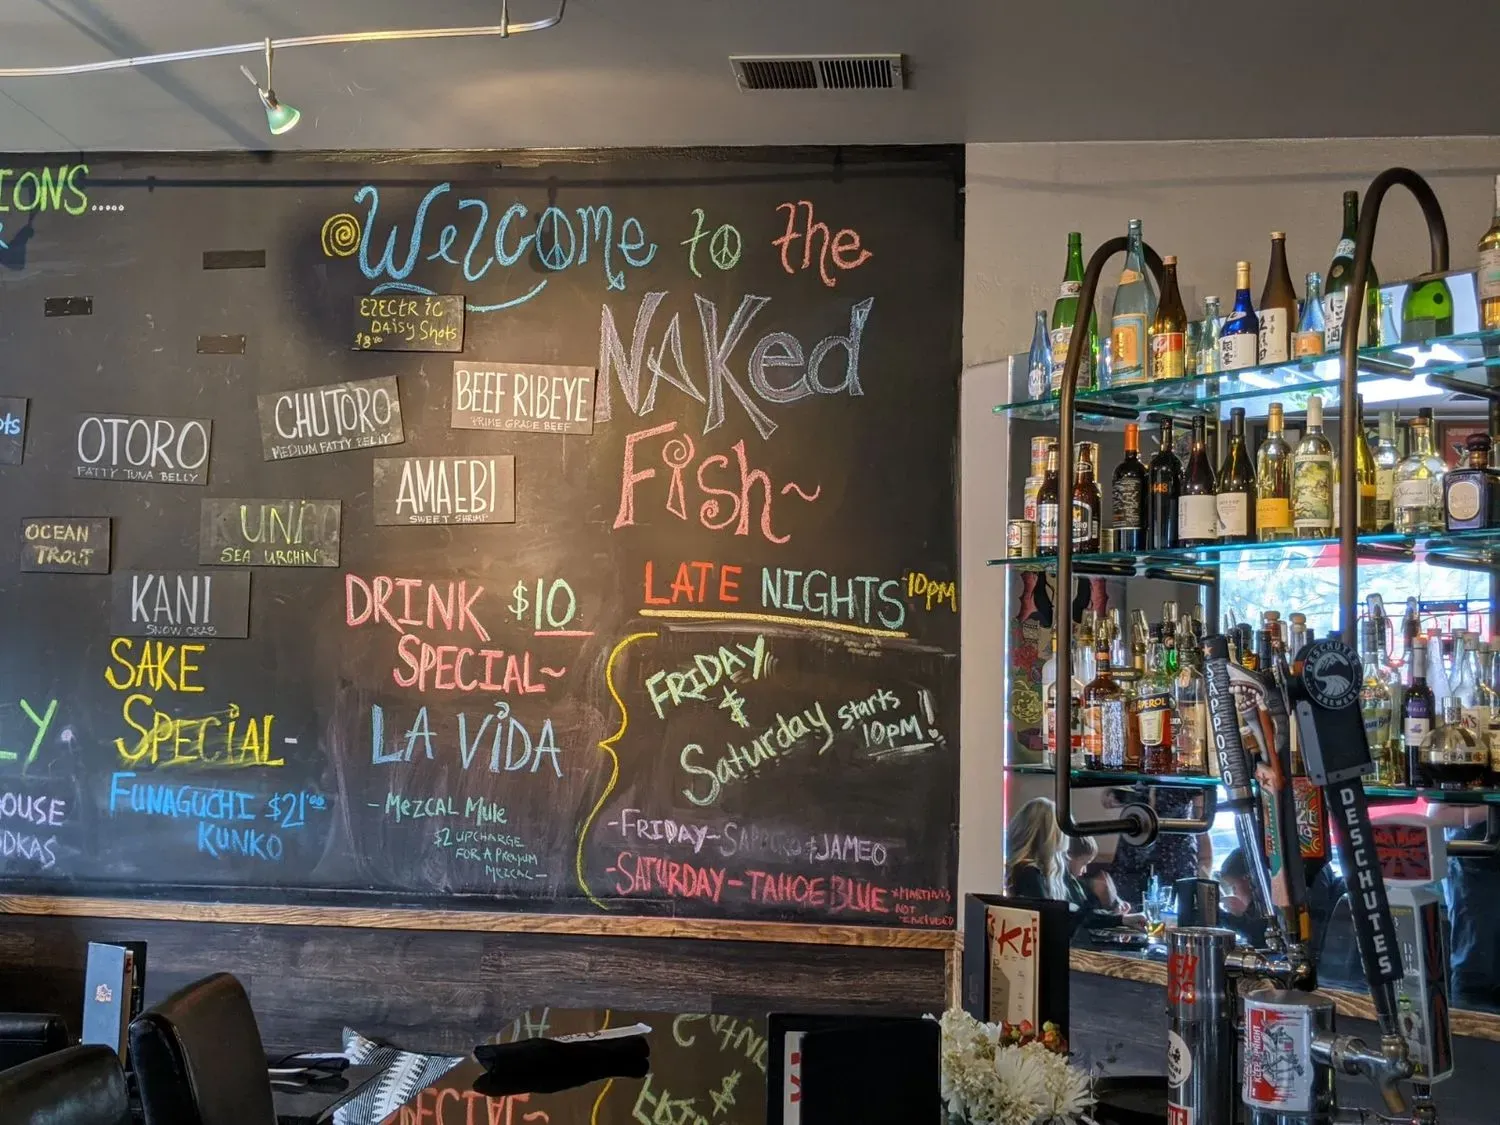 IONS.....
Welcome to the
Naked
Fish~
ELECTRIC
Daisy Shots
$8.00
BEEF RIBEYE
PRIME GRADE BEEF
CHUTORO
MEDIUM FATTY BELLY
OTORO
FATTY TUNA BELLY
AMAEBI
SWEET SHRIMP
UNI
SEA URCHIN
OCEAN
TROUT
KANI
SNOW CRAB
SAKE
SPECIAL-
FUNAGUCHI $21.00
KUNKO
LY
OUSE
DKAS
DRINK $10
SPECIAL~
LA ViDA
- MEZCAL MULE
$2 UPCHARGE
FOR A PREMIUM
MEZCAL-
LATE NIGHTS ~10PM
FRIDAY
&
Saturday starts
10PM!
-FRIDAY~SAPPORO & JAMEO
-SATURDAY-TAHOE BLUE
*MARTINIS
NOT
INCLUDED
SAPPORO
DESCHUTES
BREWERY
DESCHUTES
APEROL